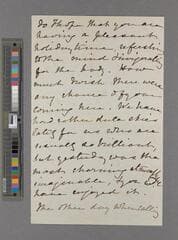 do I hope that you are
having a pleasant
holiday time, refreshing
to the mind & invigorating
for the body. How
much I wish there were
any chance of your
coming here. We have
had rather dull skies
lately for us who are
usually so brilliant,
but yesterday was the
most charming
imaginable, & you
have enjoyed it.
The other day when